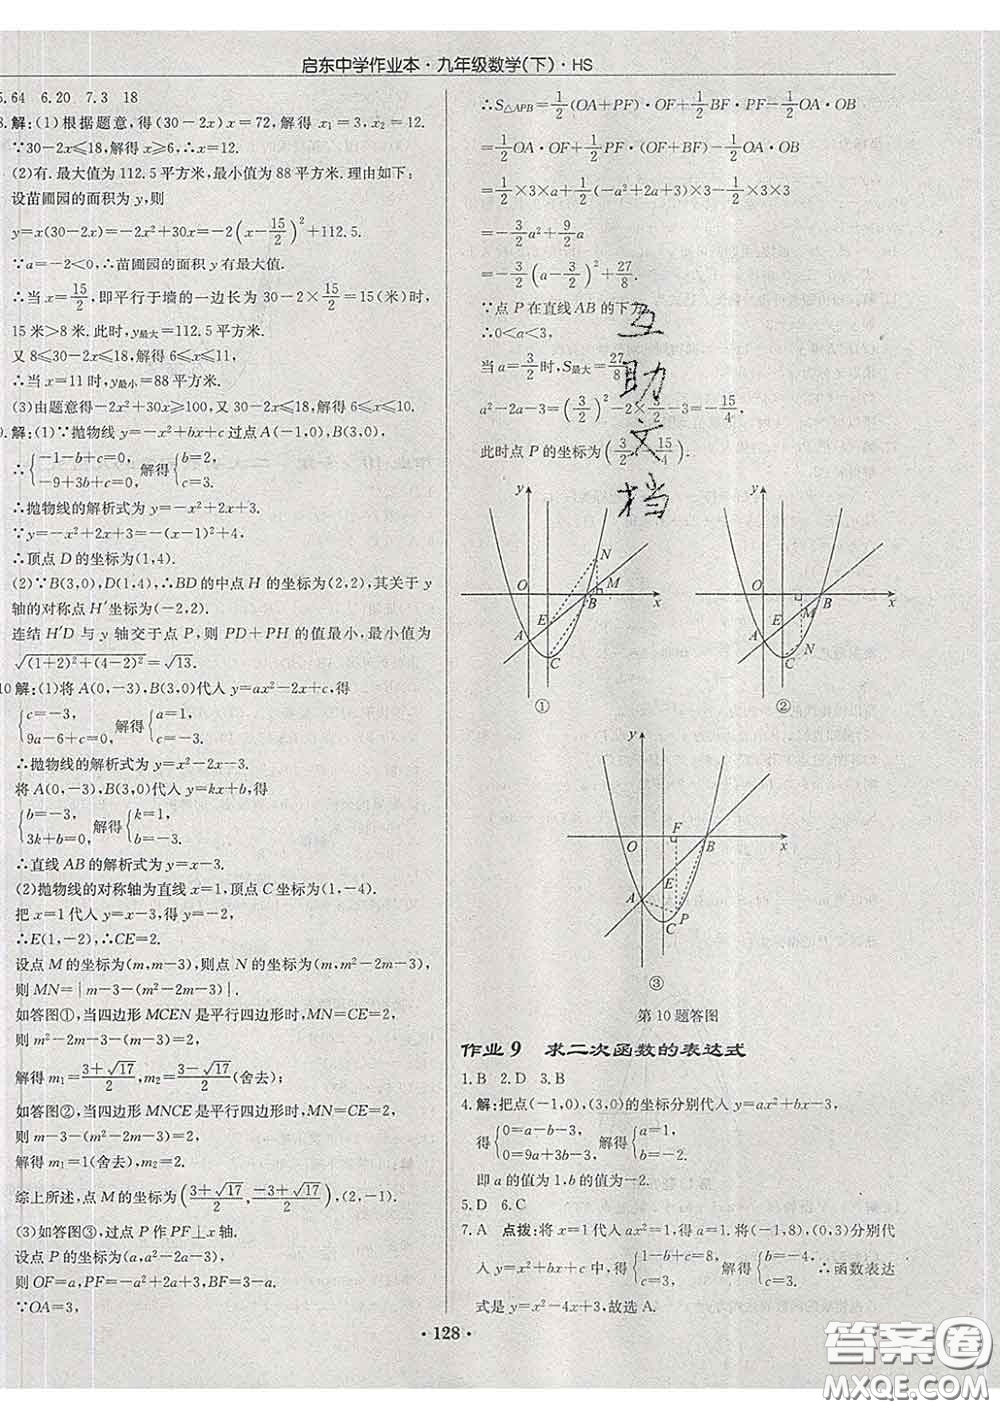 启东中学作业本·九年级数学(下)·HS
5.64 6.20 7.3 18
8.解:(1)根据题意,得(30-2x)x=72,解得 x₁=3,x₂=12.
∵30-2x≤18,解得x≥6,∴x=12.
(2)有.最大值为112.5平方米,最小值为88平方米.理由如下:
设苗圃园的面积为y,则
y=x(30-2x)=-2x²+30x=-2(x-15/2)²+112.5.
∵a=-2<0,∴苗圃园的面积y有最大值.
∴当x=15/2,即平行于墙的一边长为30-2×15/2=15(米)时,
15米>8米.此时,y最大=112.5平方米.
又8≤30-2x≤18,解得6≤x≤11.
∴当x=11时,y最小=88平方米.
(3)由题意得-2x²+30x≥100,又30-2x≤18,解得6≤x≤10.
9.解:(1)∵抛物线y=-x²+bx+c过点A(-1,0),B(3,0),
∴{-1-b+c=0, -9+3b+c=0, 解得{b=2, c=3.
∴抛物线的解析式为y=-x²+2x+3.
∵y=-x²+2x+3=-(x-1)²+4,
∴顶点D的坐标为(1,4).
(2)∵B(3,0),D(1,4),∴BD的中点H的坐标为(2,2),其关于y
轴的对称点H′坐标为(-2,2).
连结H′D与y轴交于点P,则PD+PH的值最小,最小值为
√((1+2)²+(4-2)²)=√13.
10.解:(1)将A(0,-3),B(3,0)代入y=ax²-2x+c,得
{c=-3, 9a-6+c=0, 解得{a=1, c=-3.
∴抛物线的解析式为y=x²-2x-3.
将A(0,-3),B(3,0)代入y=kx+b,得
{b=-3, 3k+b=0, 解得{k=1, b=-3.
∴直线AB的解析式为y=x-3.
(2)抛物线的对称轴为直线x=1,顶点C坐标为(1,-4).
把x=1代入y=x-3,得y=-2,
∴E(1,-2),∴CE=2.
设点M的坐标为(m,m-3),则点N的坐标为(m,m²-2m-3),
则MN=|m-3-(m²-2m-3)|.
如答图①,当四边形MCEN是平行四边形时,MN=CE=2,
则m²-2m-3-(m-3)=2,
解得m₁=(3+√17)/2,m₂=(3-√17)/2(舍去);
如答图②,当四边形MNCE是平行四边形时,MN=CE=2,
则m-3-(m²-2m-3)=2,
解得m₁=1(舍去),m₂=2.
综上所述,点M的坐标为((3+√17)/2,(-3+√17)/2),(2,-1).
(3)如答图③,过点P作PF⊥x轴,
设点P的坐标为(a,a²-2a-3),
则OF=a,PF=-a²+2a+3,BF=3-a.
∵OA=3,
∴S△APB=1/2(OA+PF)·OF+1/2BF·PF-1/2OA·OB
=1/2OA·OF+1/2PF·(OF+BF)-1/2OA·OB
=1/2×3×a+1/2(-a²+2a+3)×3-1/2×3×3
=-3/2a²+9/2a
=-3/2(a-3/2)²+27/8.
∵点P在直线AB的下方,
∴0<a<3,
当a=3/2时,S最大=27/8,
a²-2a-3=(3/2)²-2×3/2-3=-15/4,
此时点P的坐标为(3/2,-15/4).
互助文档
y N O M B x E A C ①
y O B x M A N C ②
y F O B x E A C P ③
第10题答图
作业9 求二次函数的表达式
1.B 2.D 3.B
4.解:把点(-1,0),(3,0)的坐标分别代入y=ax²+bx-3,
得{0=a-b-3, 0=9a+3b-3, 解得{a=1, b=-2.
即a的值为1,b的值为-2.
5.D 6.C
7.A 点拨:将x=1代入ax²=1,得a=1.将(-1,8),(0,3)分别代
入y=x²+bx+c中,得{1-b+c=8, c=3, 解得{b=-4, c=3. ∴函数表达
式是y=x²-4x+3,故选A.
·128·
答案圈
MXQE.COM